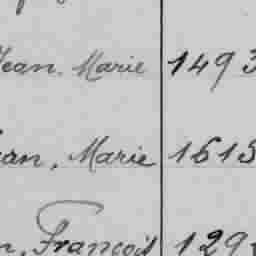 Jean. Marie 1493
Jean, Marie 1613
François 129